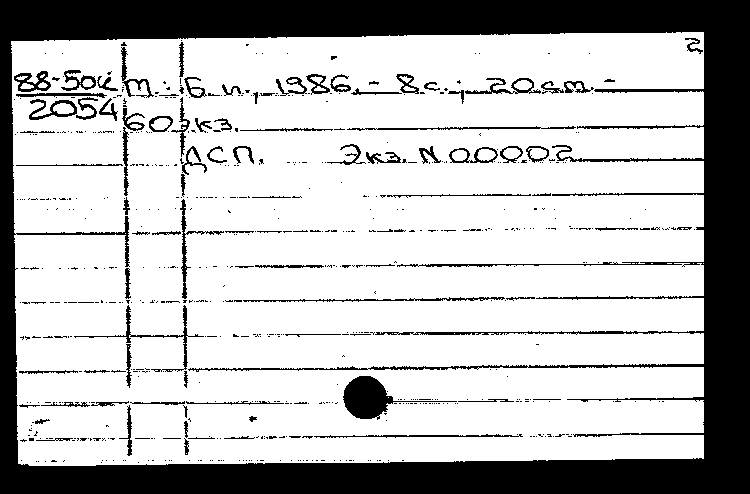 2
88-50к т.: Б. и., 1986. - 8 с.; 20 cm. -
2054
60 экз.
ДСП. Экз. N 00002